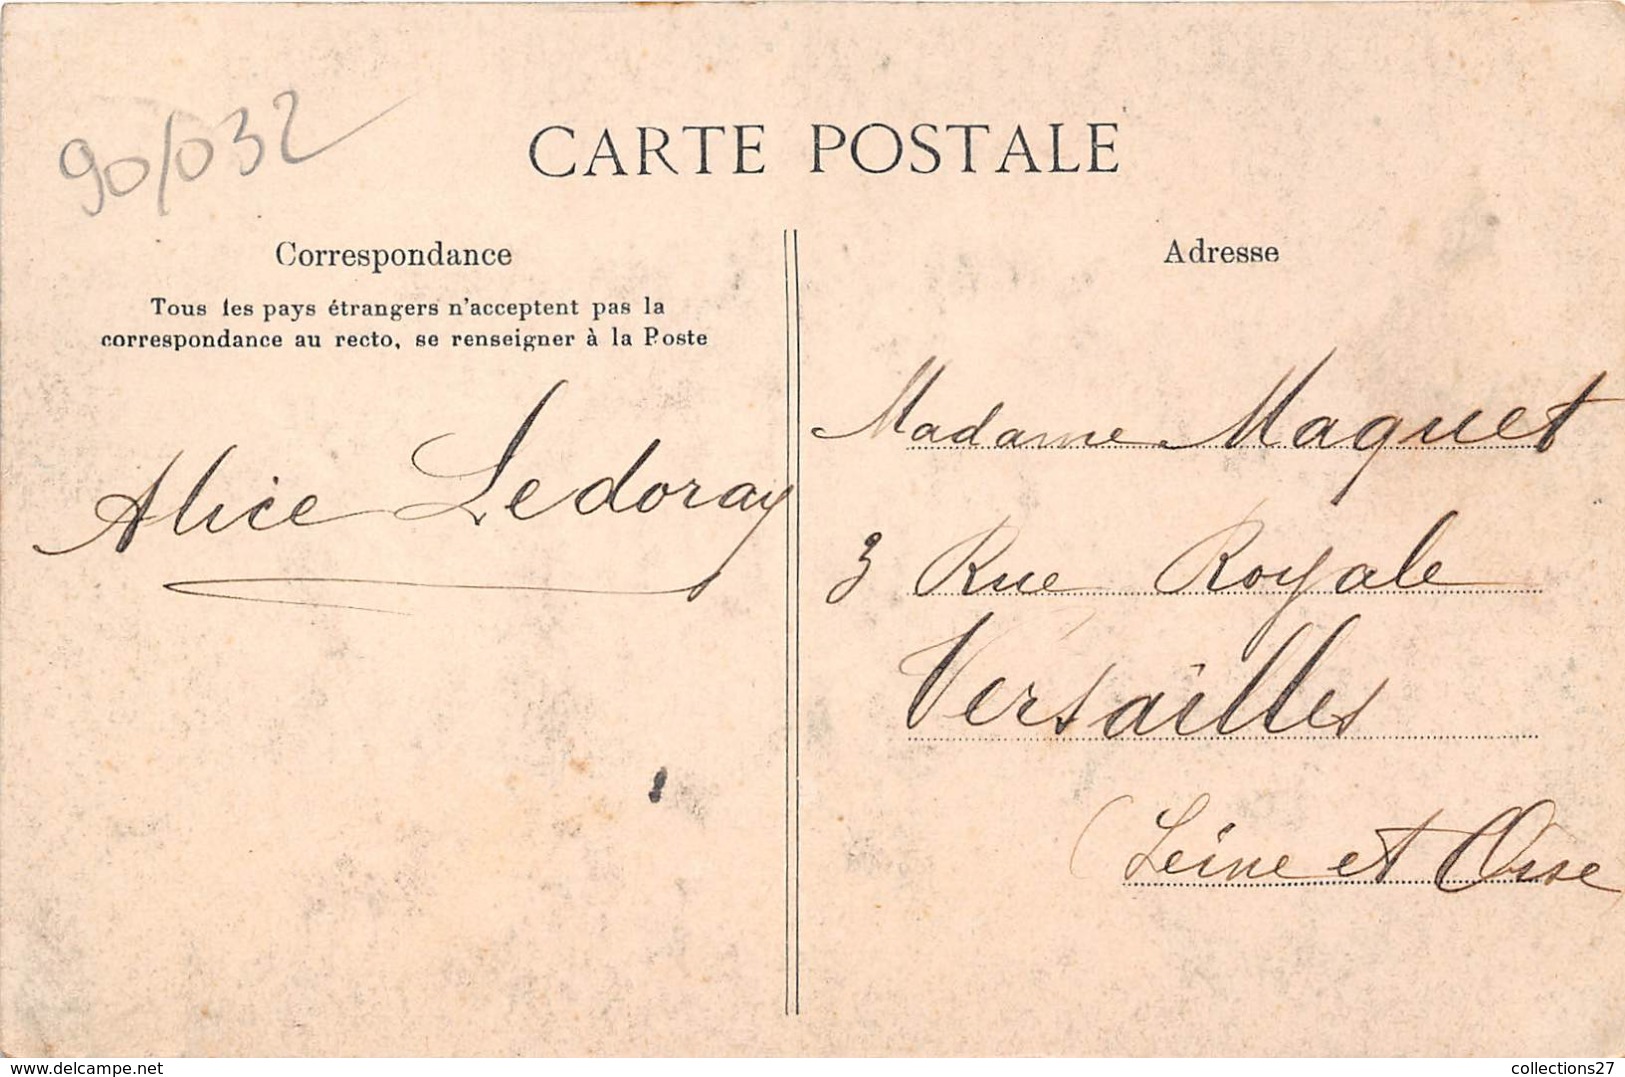 90/032
CARTE POSTALE
Correspondance
Tous les pays étrangers n'acceptent pas la
correspondance au recto, se renseigner à la Poste
Alice Ledoray
Adresse
Madame Maquet
3 Rue Royale
Versailles
(Seine et Oise
www.delcampe.net
collections27